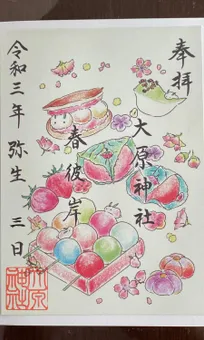 奉拝
大原神社
春彼岸
令和三年 弥生 三日